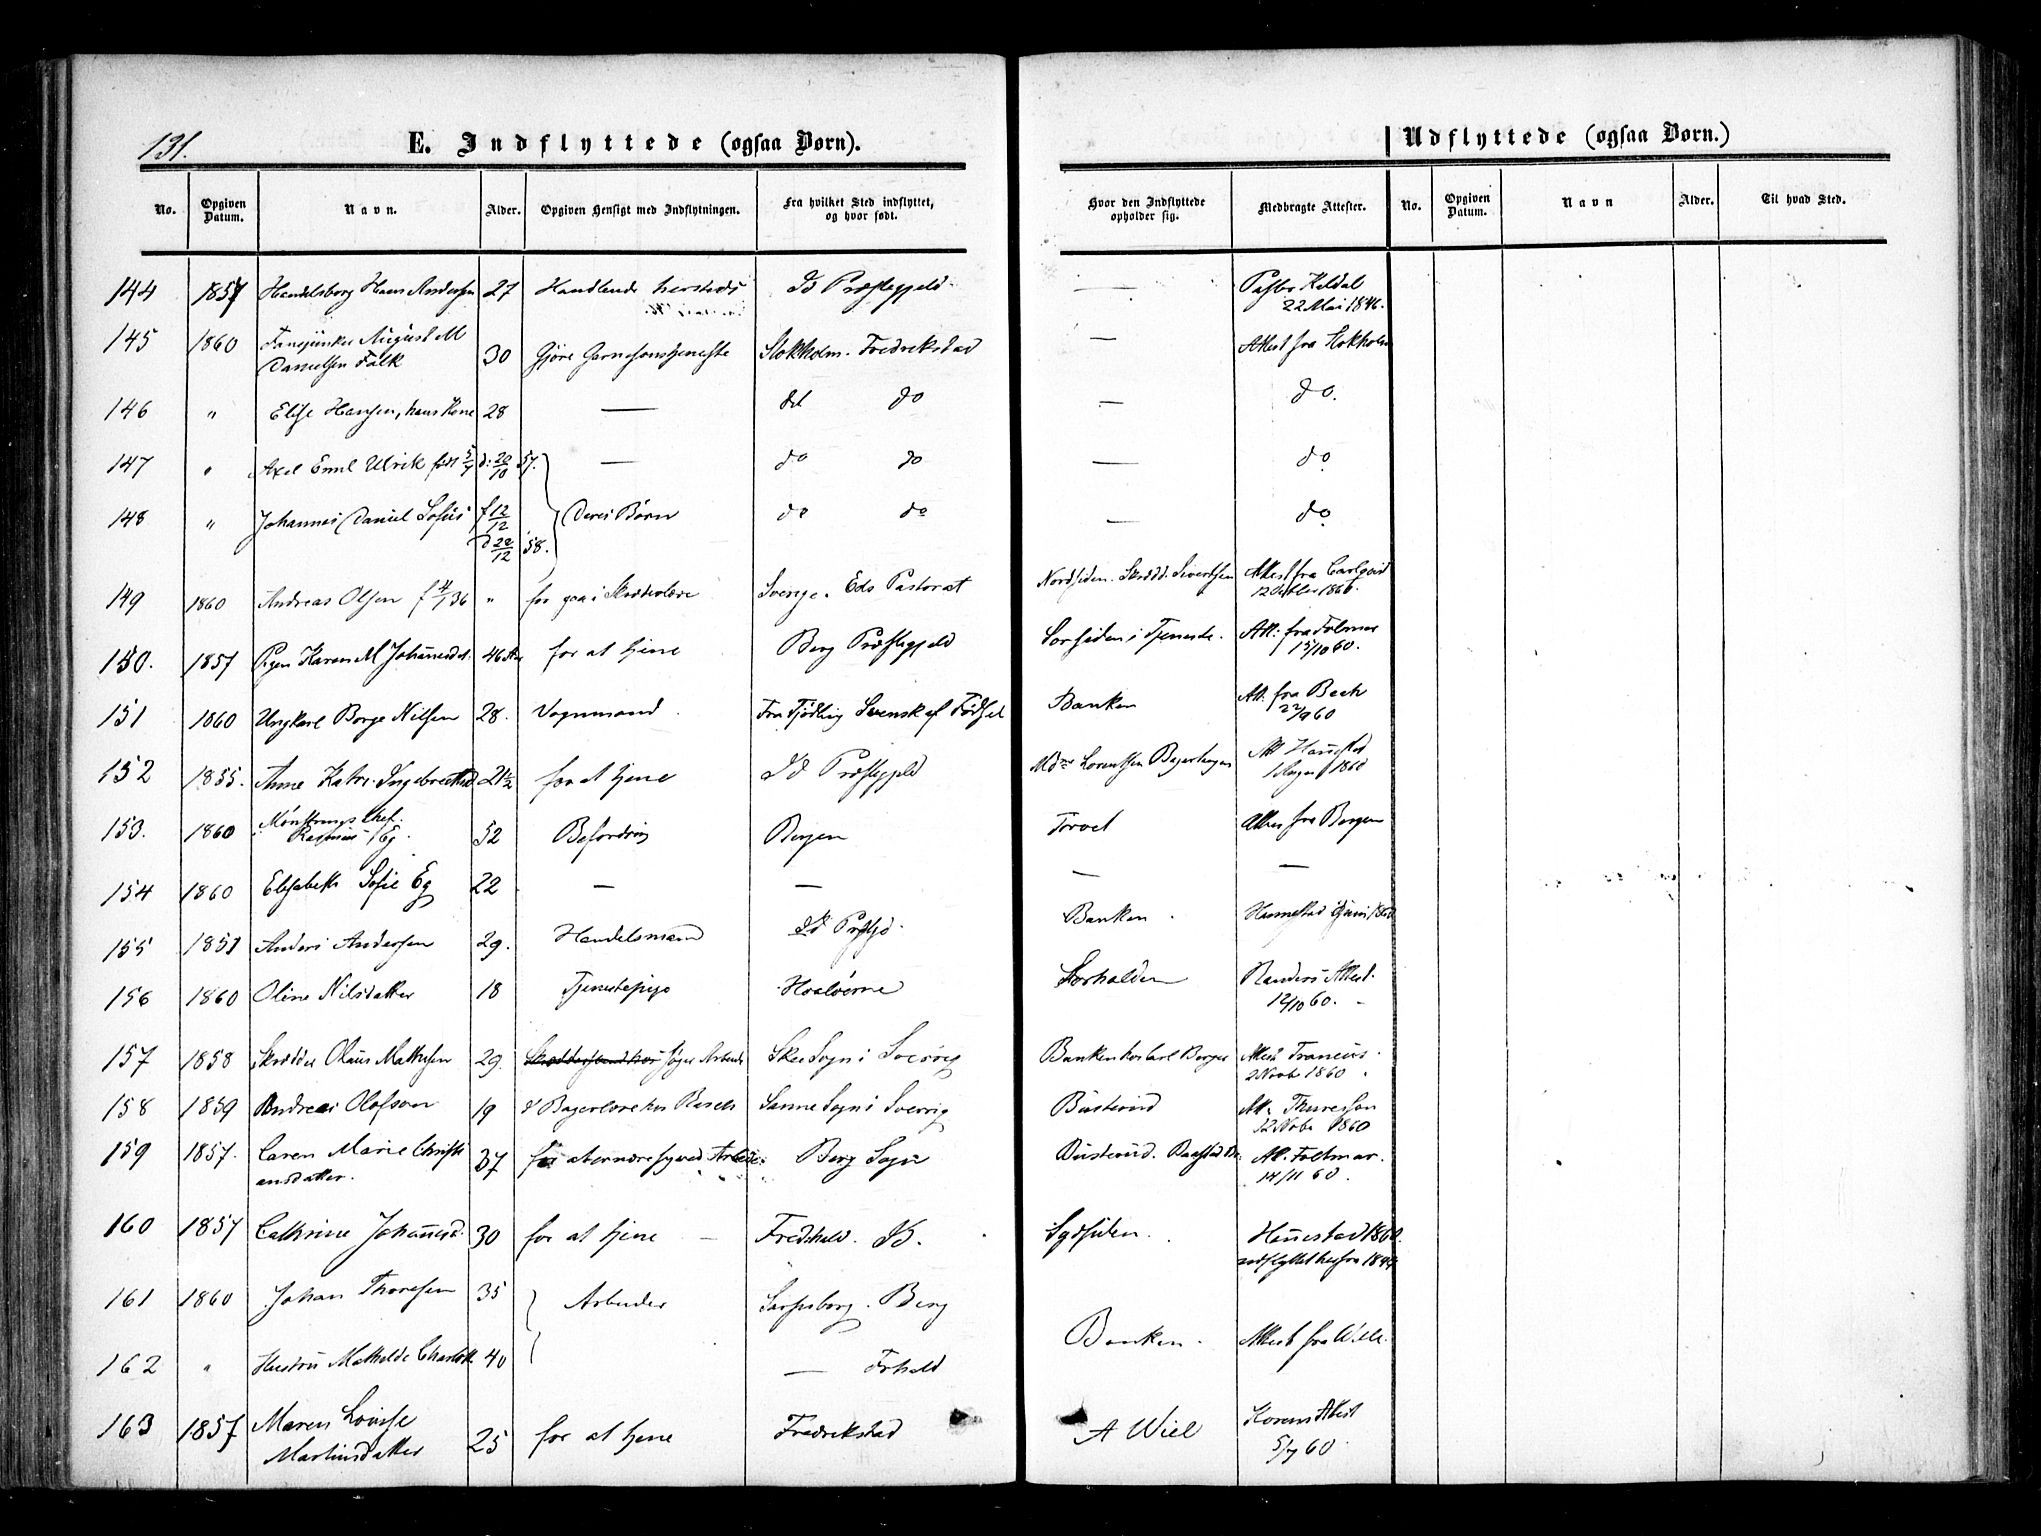 131.
E. Indflyttede (ogsaa Børn).
Udflyttede (ogsaa Børn.)
No. Opgiven Datum. Navn. Alder. Opgiven Hensigt med Indflytningen. Fra hvilket Sted indflyttet, og hvor født. Hvor den Indflyttede opholder sig. Medbragte Attester. No. Opgiven Datum. Navn Alder. Til hvad Sted.
144 1857 Handelsborg Hans Andersen 27 Handlende Id Præstegjeld — Pastor Keldal
22 Mai 1846.
145 1860 August M
Danielsen Falk 30 Gjøre Garnisonstjeneste Stokholm. Fredrikstad — Attest fra Stokholm
146 " Elise Hansen, hans Kone 28 — do — do.
147 " Axel Emil Ulrik født 5/7 d: 20/10 57. — do do — do
148 " Johannes Daniel Sofus f 12/12 Deres Børn do do — do
d 22/12 58.
149 1860 Andreas Olsen f 4/1 36 " for gaa i Skræderlære Sverige. Eds Pastorat Nordsiden. Skrædd. Sivertsen Attest fra Carlqvist
1860.
150. 1857 Pigen Karen M Johannesdt. 46 Aar for at tjene Berg Præstegjeld Sørsiden i Tjeneste. Att: fra
15/10 60.
151 1860 Ungkarl Borge Nilsen 28. Vognmand. Fra Tjødling Svensk af Fødsel Banken Att. fra Bech
22/9 60
152 1855. Anne Katr. Ingebretsd 21½ for at tjene Id Præstegjeld Mdme Lorentsen
1860
153. 1860 Mønstrings Chef.
Rasmus Eg. 52 Befordring Bergen Torvet Attest fra Bergen
154 1860 Elisabeth Sofie Eg 22 — — — —
155 1851 Anders Andersen 29. Handelsmand Id Banken.
156 1860 Oline Nilsdatter 18 Tjenestepige Hvaløerne Randers Attest.
12/10 60.
157 1858 Skrædder Olaus Mathisen 29. Søger Arbeide Skee Sogn i Sverrig Banken hos Carl Borger Attest
2 Novb 1860
158 1859 Andreas Olofson 19 i Bagerlære hos Rasch Sanne Sogn i Sverrig Att. Thuresson
12 Novb. 1860
159 1857. Caren Marie Christi
ansdatter. 37 for at ernære sig ved Arbeide Berg Sogn Att. Foltmar.
14/11 60.
160 1857 Cathrine Johannesd. 30 for at tjene — Fredshald. Sydsiden. 1860.
udflyttet herfra 1844
161 1860 Johan Thoresen 35 Arbeider Sarpsborg. Berg
Banken. Attest fra Wille.
162 " Hustru Mathilde Charlotte 40 — Frhald
163 1857 Maren Lovise
Martinsdatter 25 for at tjene Fredrikstad A Wiel Korens Attest
5/7 60